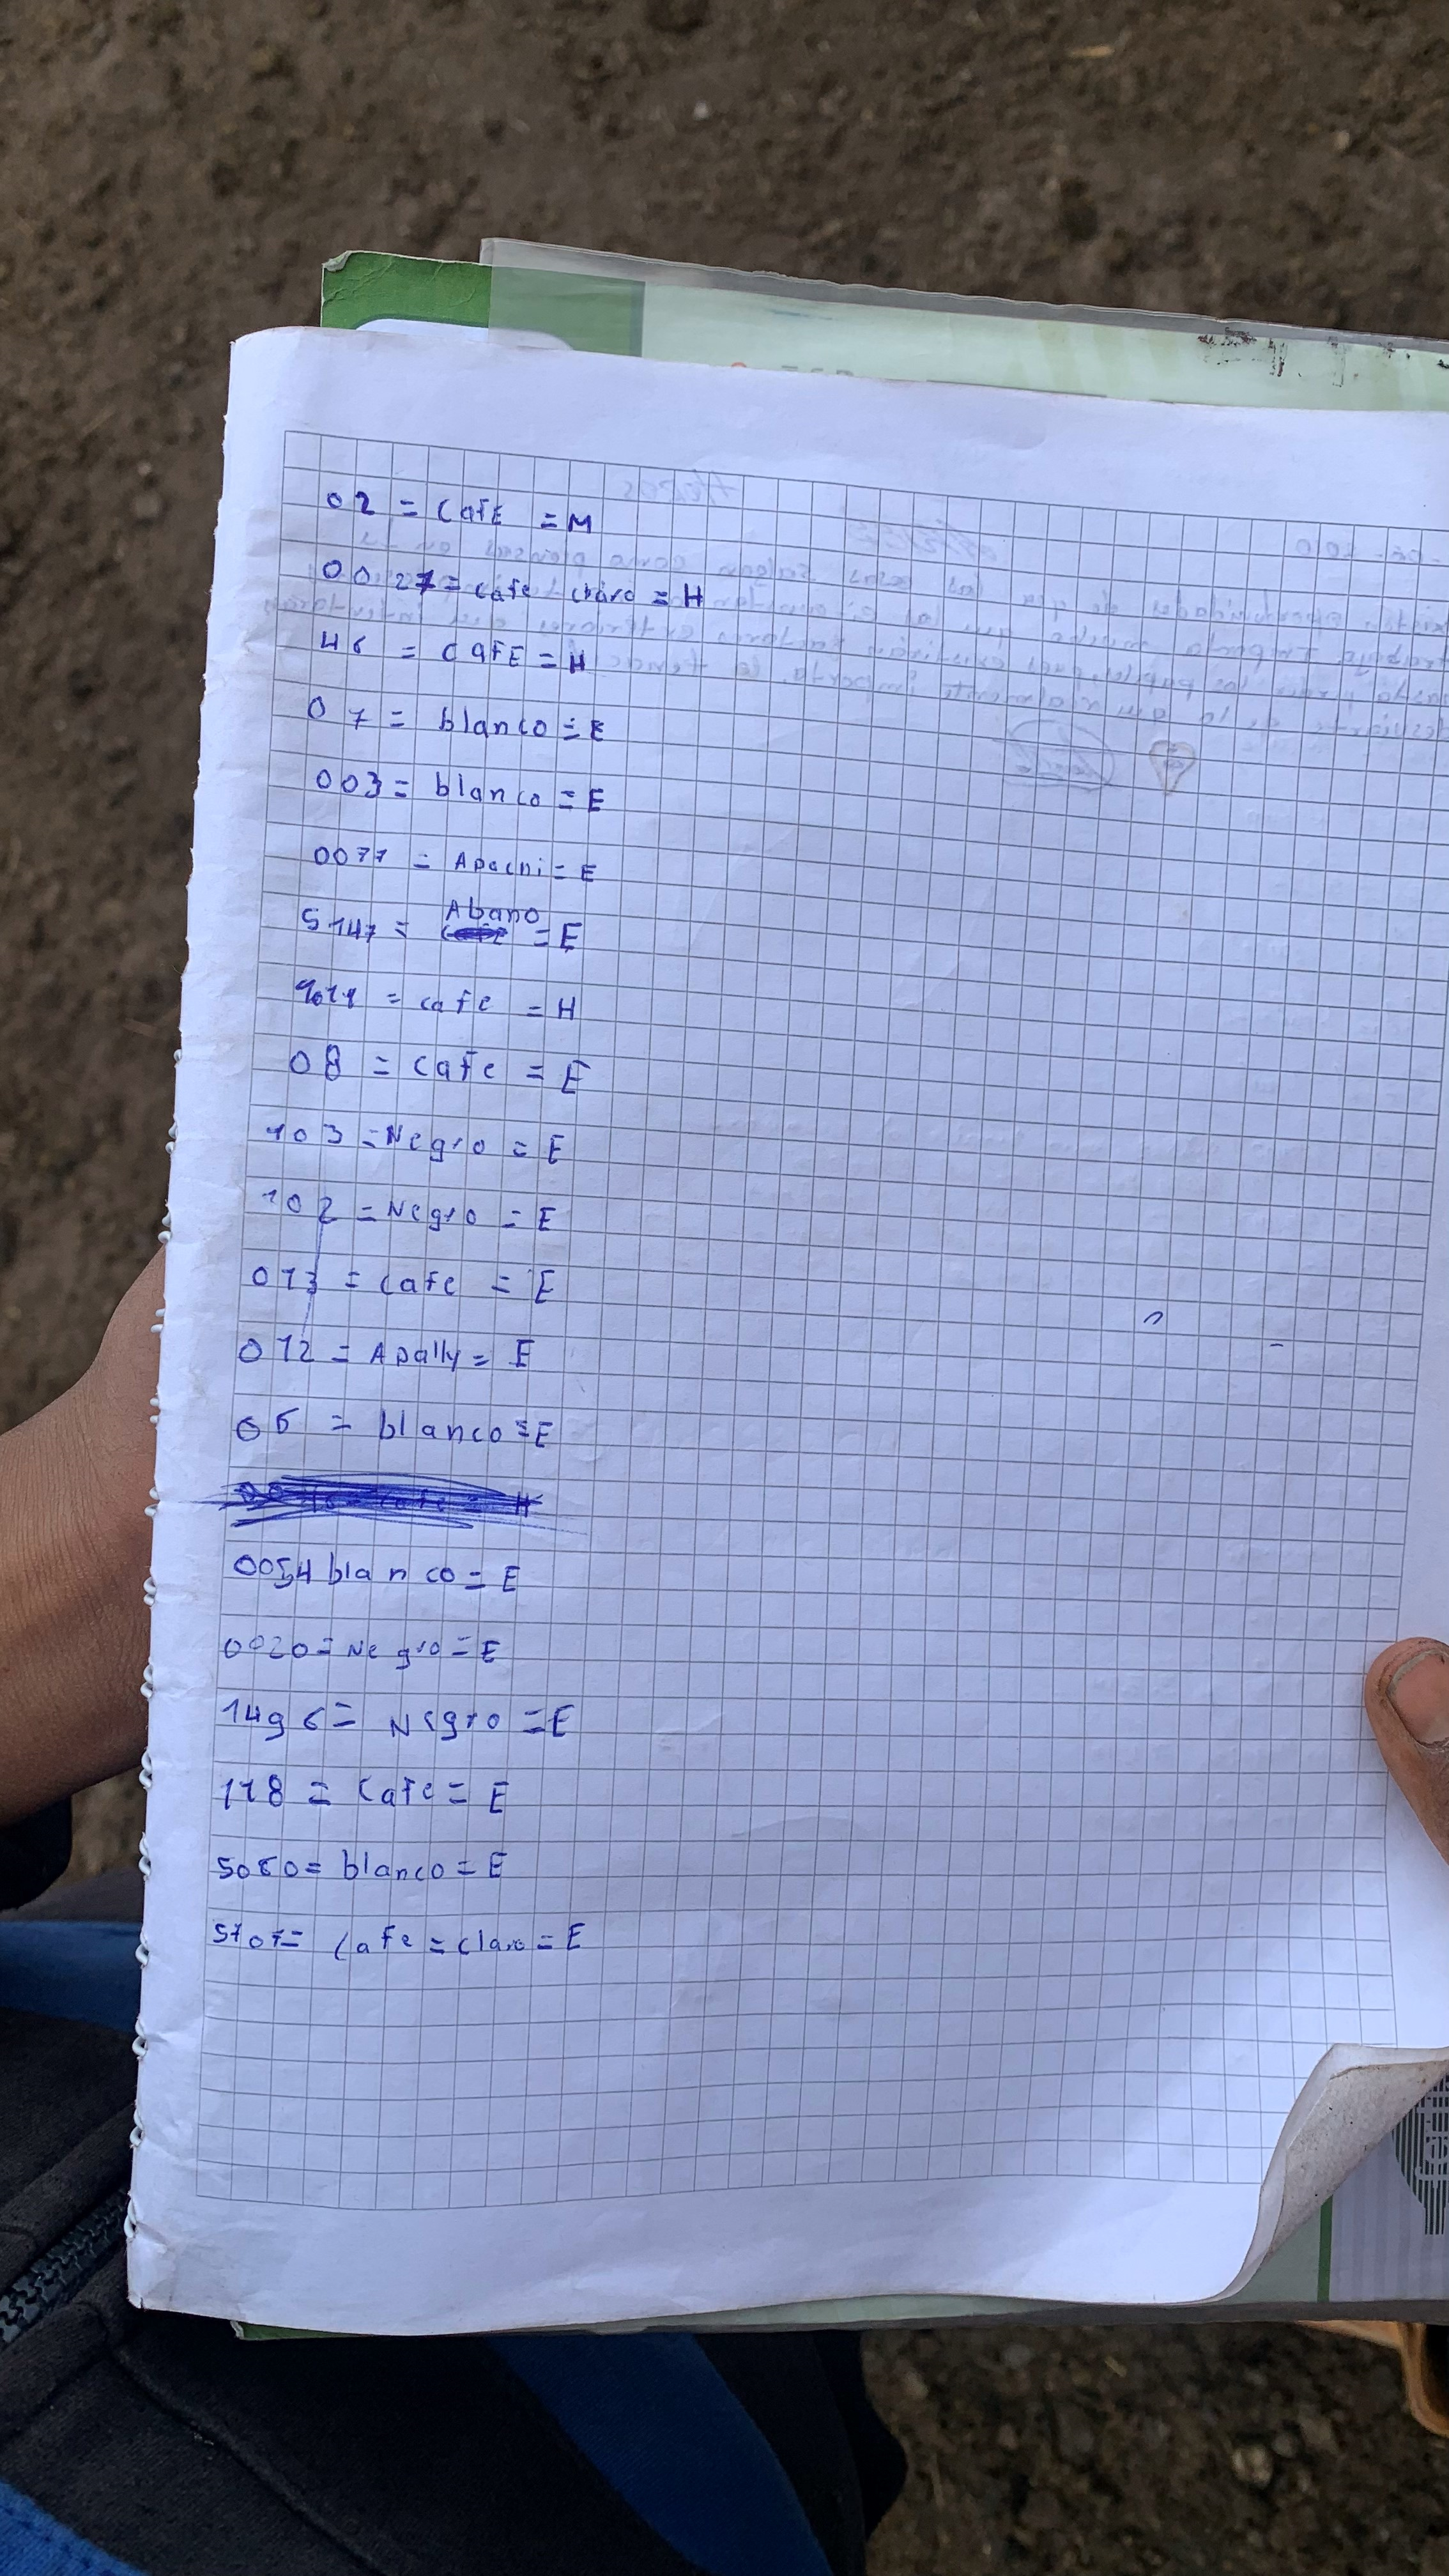 02 = CafE = M
0027 = cafe claro = H
46 = CAFE = H
07 = blanco = E
003 = blanco = E
0077 = Apachi = E
5147 = Abano = E
= cafe = H
08 = cafe = E
103 = Negro = E
102 = Negro = E
013 = cafe = E
012 = Apally = E
06 = blanco = E
0054 blanco = E
0020 = Negro = E
1496 = Negro = E
118 = Cafe = E
5060 = blanco = E
5107 = Cafe = claro = E